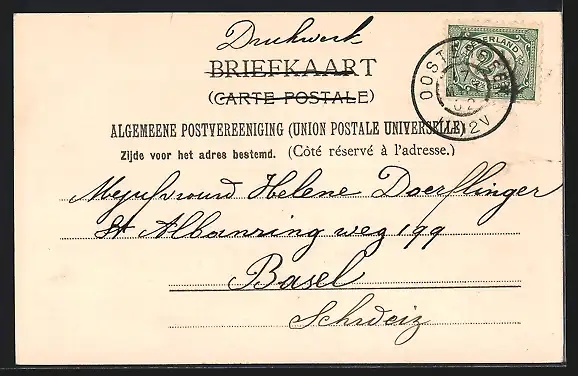 Drukwerk
BRIEFKAART
(CARTE POSTALE)
NEDERLAND
ALGEMEENE POSTVEREENIGING (UNION POSTALE UNIVERSELLE)
Zijde voor het adres bestemd. (Côté réservé à l'adresse.)
Mejufvrouw Helene Doerflinger
St Albanring weg 199
Basel
Schweiz